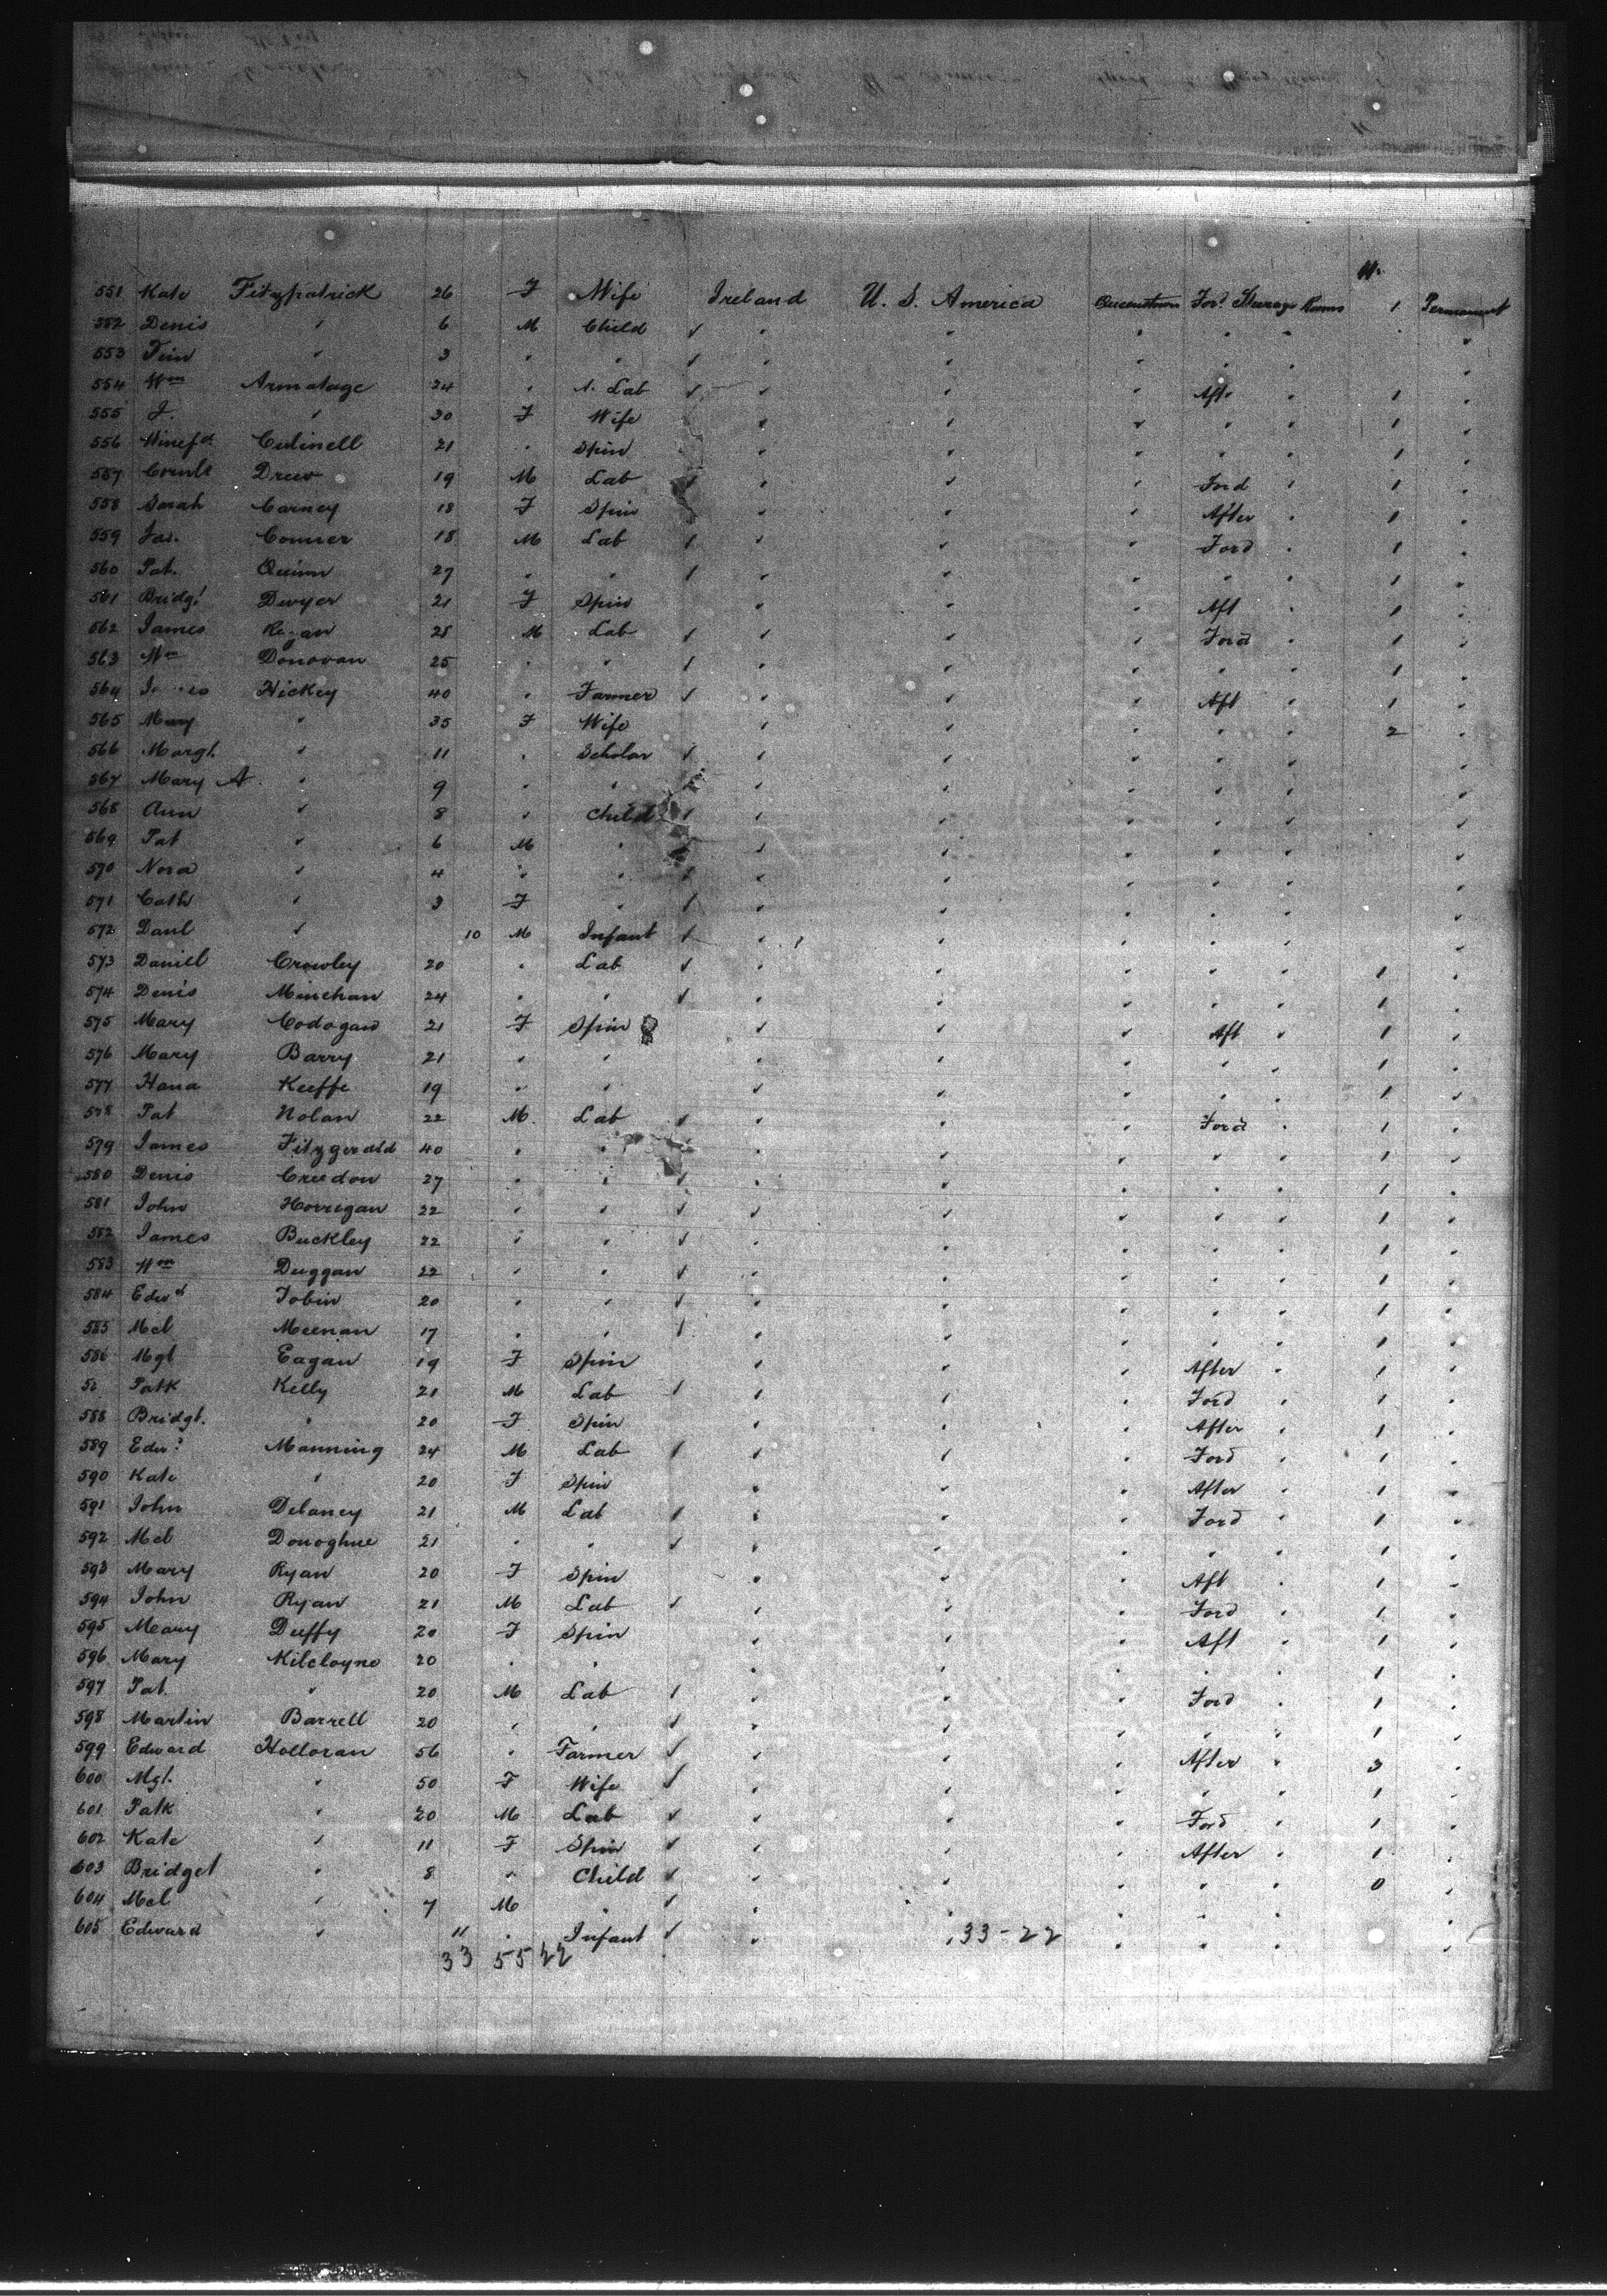 11.
551 Kate Fitzpatrick 26 F Wife Ireland U. S. America Queenstown Ford Steerage Rooms 1 Permanent
552 Denis " 6 M Child
553 " 3 " "
554 Wm Armatage 24 " Lab Aft 1
555 J. " 30 F Wife 1
556 Winefd Culinell 21 " Spin 1
557 Cornls Drew 19 M Lab Ford 1
558 Sarah Carney 18 F Spin After 1
559 Jas. Conner 18 M Lab Ford 1
560 Pat. Quinn 27 " " 1
561 Bridgt Dwyer 21 F Spin Aft 1
562 James Regan 25 M Lab Ford 1
563 Wm Donovan 25 " " 1
564 Hickey 40 " Farmer Aft 1
565 Mary " 35 F Wife 2
566 Margt. " 11 " Scholar
567 Mary A. " 9 " "
568 Ann " 8 " Child
569 Pat " 6 M "
570 Nora " 4 " "
571 Cath " 3 F "
572 Danl " 10 M Infant
573 Daniel Crowley 20 " Lab 1
574 Denis Minehan 24 " " 1
575 Mary Codogan 21 F Spin Aft 1
576 Mary Barry 21 " " 1
577 Hana Keeffe 19 " " 1
578 Pat Nolan 22 M. Lab Ford 1
579 James Fitzgerald 40 " " 1
580 Denis Creedon 27 " " 1
581 John Horregan 22 " " 1
582 James Buckley 22 " " 1
583 Wm Duggan 22 " " 1
584 Edwd Tobin 20 " " 1
585 Mcl Meenan 17 " " 1
586 Mgt Eagan 19 F Spin After 1
Patk Kelly 21 M Lab Ford 1
588 Bridgt. " 20 F Spin After 1
589 Edwd Manning 24 M Lab Ford 1
590 Kate " 20 F Spin After 1
591 John Delaney 21 M Lab Ford 1
592 Mcl Donoghue 21 " " 1
593 Mary Ryan 20 F Spin Aft 1
594 John Ryan 21 M Lab Ford 1
595 Mary Duffy 20 F Spin Aft 1
596 Mary Kilcloyne 20 " " 1
597 Pat. " 20 M Lab Ford 1
598 Martin Barrett 20 " " 1
599 Edward Holloran 56 " Farmer After 3
600 Mgt. " 50 F Wife 1
601 Patk " 20 M Lab Ford 1
602 Kate " 11 F Spin After 1
603 Bridget " 8 " Child 0
604 Mcl " 7 M "
605 Edward " 11 " Infant 33-22
33 55 22